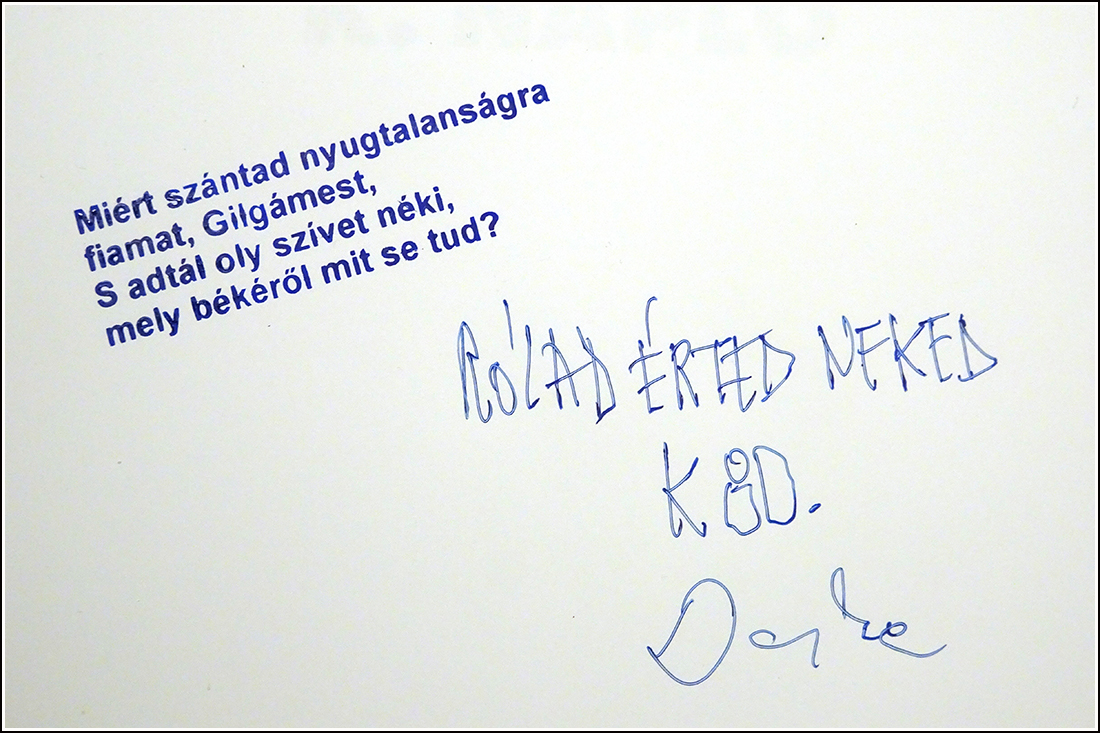 Miért szántad nyugtalanságra
fiamat, Gilgámest,
S adtál oly szívet néki,
mely békéről mit se tud?
RÓLAD ÉRTED NEKED
KÖD.